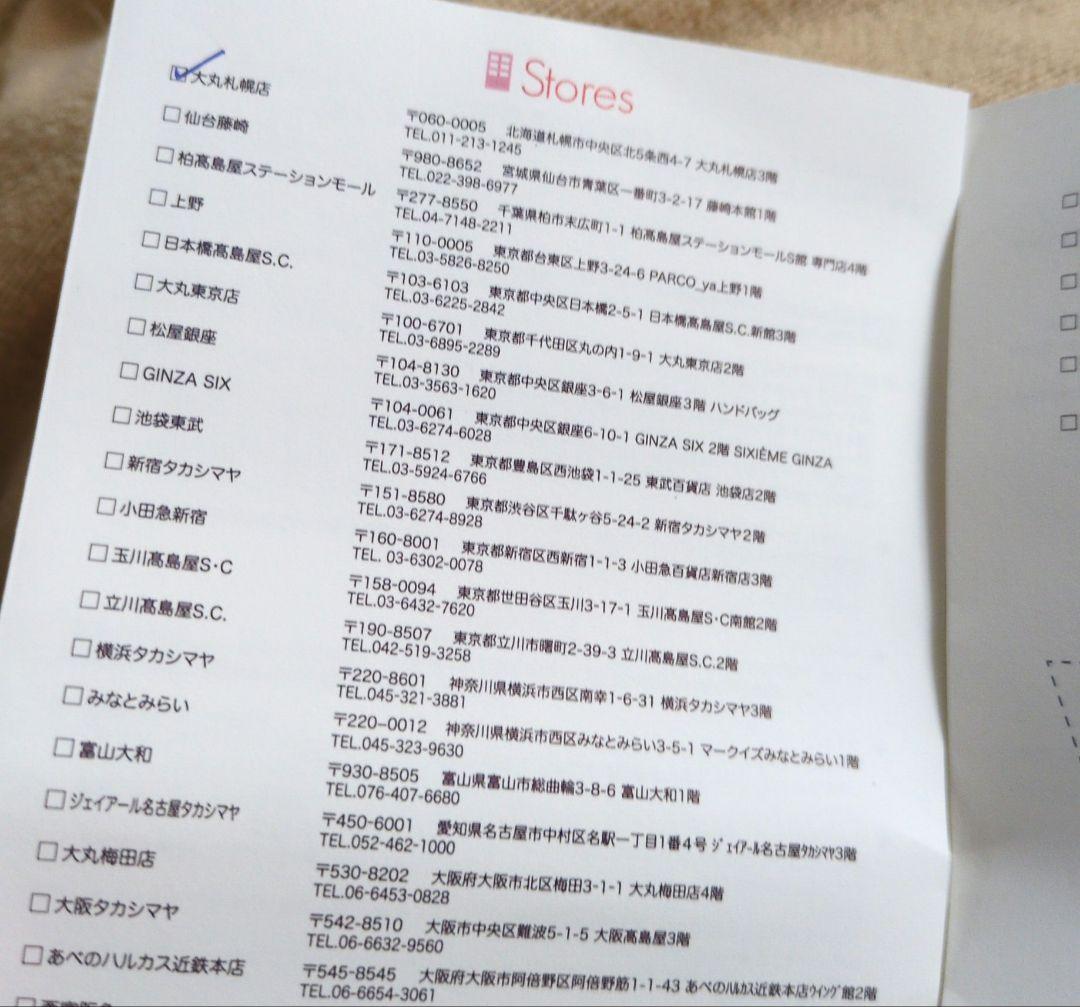 Stores
☑大丸札幌店
〒060-0005 北海道札幌市中央区北5条西4-7 大丸札幌店3階
TEL.011-213-1245
☐仙台藤崎
〒980-8652 宮城県仙台市青葉区一番町3-2-17 藤崎本館1階
TEL.022-398-6977
☐柏髙島屋ステーションモール
〒277-8550 千葉県柏市末広町1-1 柏髙島屋ステーションモールS館 専門店4階
TEL.04-7148-2211
☐上野
〒110-0005 東京都台東区上野3-24-6 PARCO_ya上野1階
TEL.03-5826-8250
☐日本橋髙島屋S.C.
〒103-6103 東京都中央区日本橋2-5-1 日本橋髙島屋S.C.新館3階
TEL.03-6225-2842
☐大丸東京店
〒100-6701 東京都千代田区丸の内1-9-1 大丸東京店2階
TEL.03-6895-2289
☐松屋銀座
〒104-8130 東京都中央区銀座3-6-1 松屋銀座3階 ハンドバッグ
TEL.03-3563-1620
☐GINZA SIX
〒104-0061 東京都中央区銀座6-10-1 GINZA SIX 2階 SIXIÈME GINZA
TEL.03-6274-6028
☐池袋東武
〒171-8512 東京都豊島区西池袋1-1-25 東武百貨店 池袋店2階
TEL.03-5924-6766
☐新宿タカシマヤ
〒151-8580 東京都渋谷区千駄ヶ谷5-24-2 新宿タカシマヤ2階
TEL.03-6274-8928
☐小田急新宿
〒160-8001 東京都新宿区西新宿1-1-3 小田急百貨店新宿店3階
TEL. 03-6302-0078
☐玉川髙島屋S・C
〒158-0094 東京都世田谷区玉川3-17-1 玉川髙島屋S・C南館2階
TEL.03-6432-7620
☐立川髙島屋S.C.
〒190-8507 東京都立川市曙町2-39-3 立川髙島屋S.C.2階
TEL.042-519-3258
☐横浜タカシマヤ
〒220-8601 神奈川県横浜市西区南幸1-6-31 横浜タカシマヤ3階
TEL.045-321-3881
☐みなとみらい
〒220-0012 神奈川県横浜市西区みなとみらい3-5-1 マークイズみなとみらい1階
TEL.045-323-9630
☐富山大和
〒930-8505 富山県富山市総曲輪3-8-6 富山大和1階
TEL.076-407-6680
☐ジェイアール名古屋タカシマヤ
〒450-6001 愛知県名古屋市中村区名駅一丁目1番4号 ジェイアール名古屋タカシマヤ3階
TEL.052-462-1000
☐大丸梅田店
〒530-8202 大阪府大阪市北区梅田3-1-1 大丸梅田店4階
TEL.06-6453-0828
☐大阪タカシマヤ
〒542-8510 大阪市中央区難波5-1-5 大阪髙島屋3階
TEL.06-6632-9560
☐あべのハルカス近鉄本店
〒545-8545 大阪府大阪市阿倍野区阿倍野筋1-1-43 あべのハルカス近鉄本店ウイング館2階
TEL.06-6654-3061